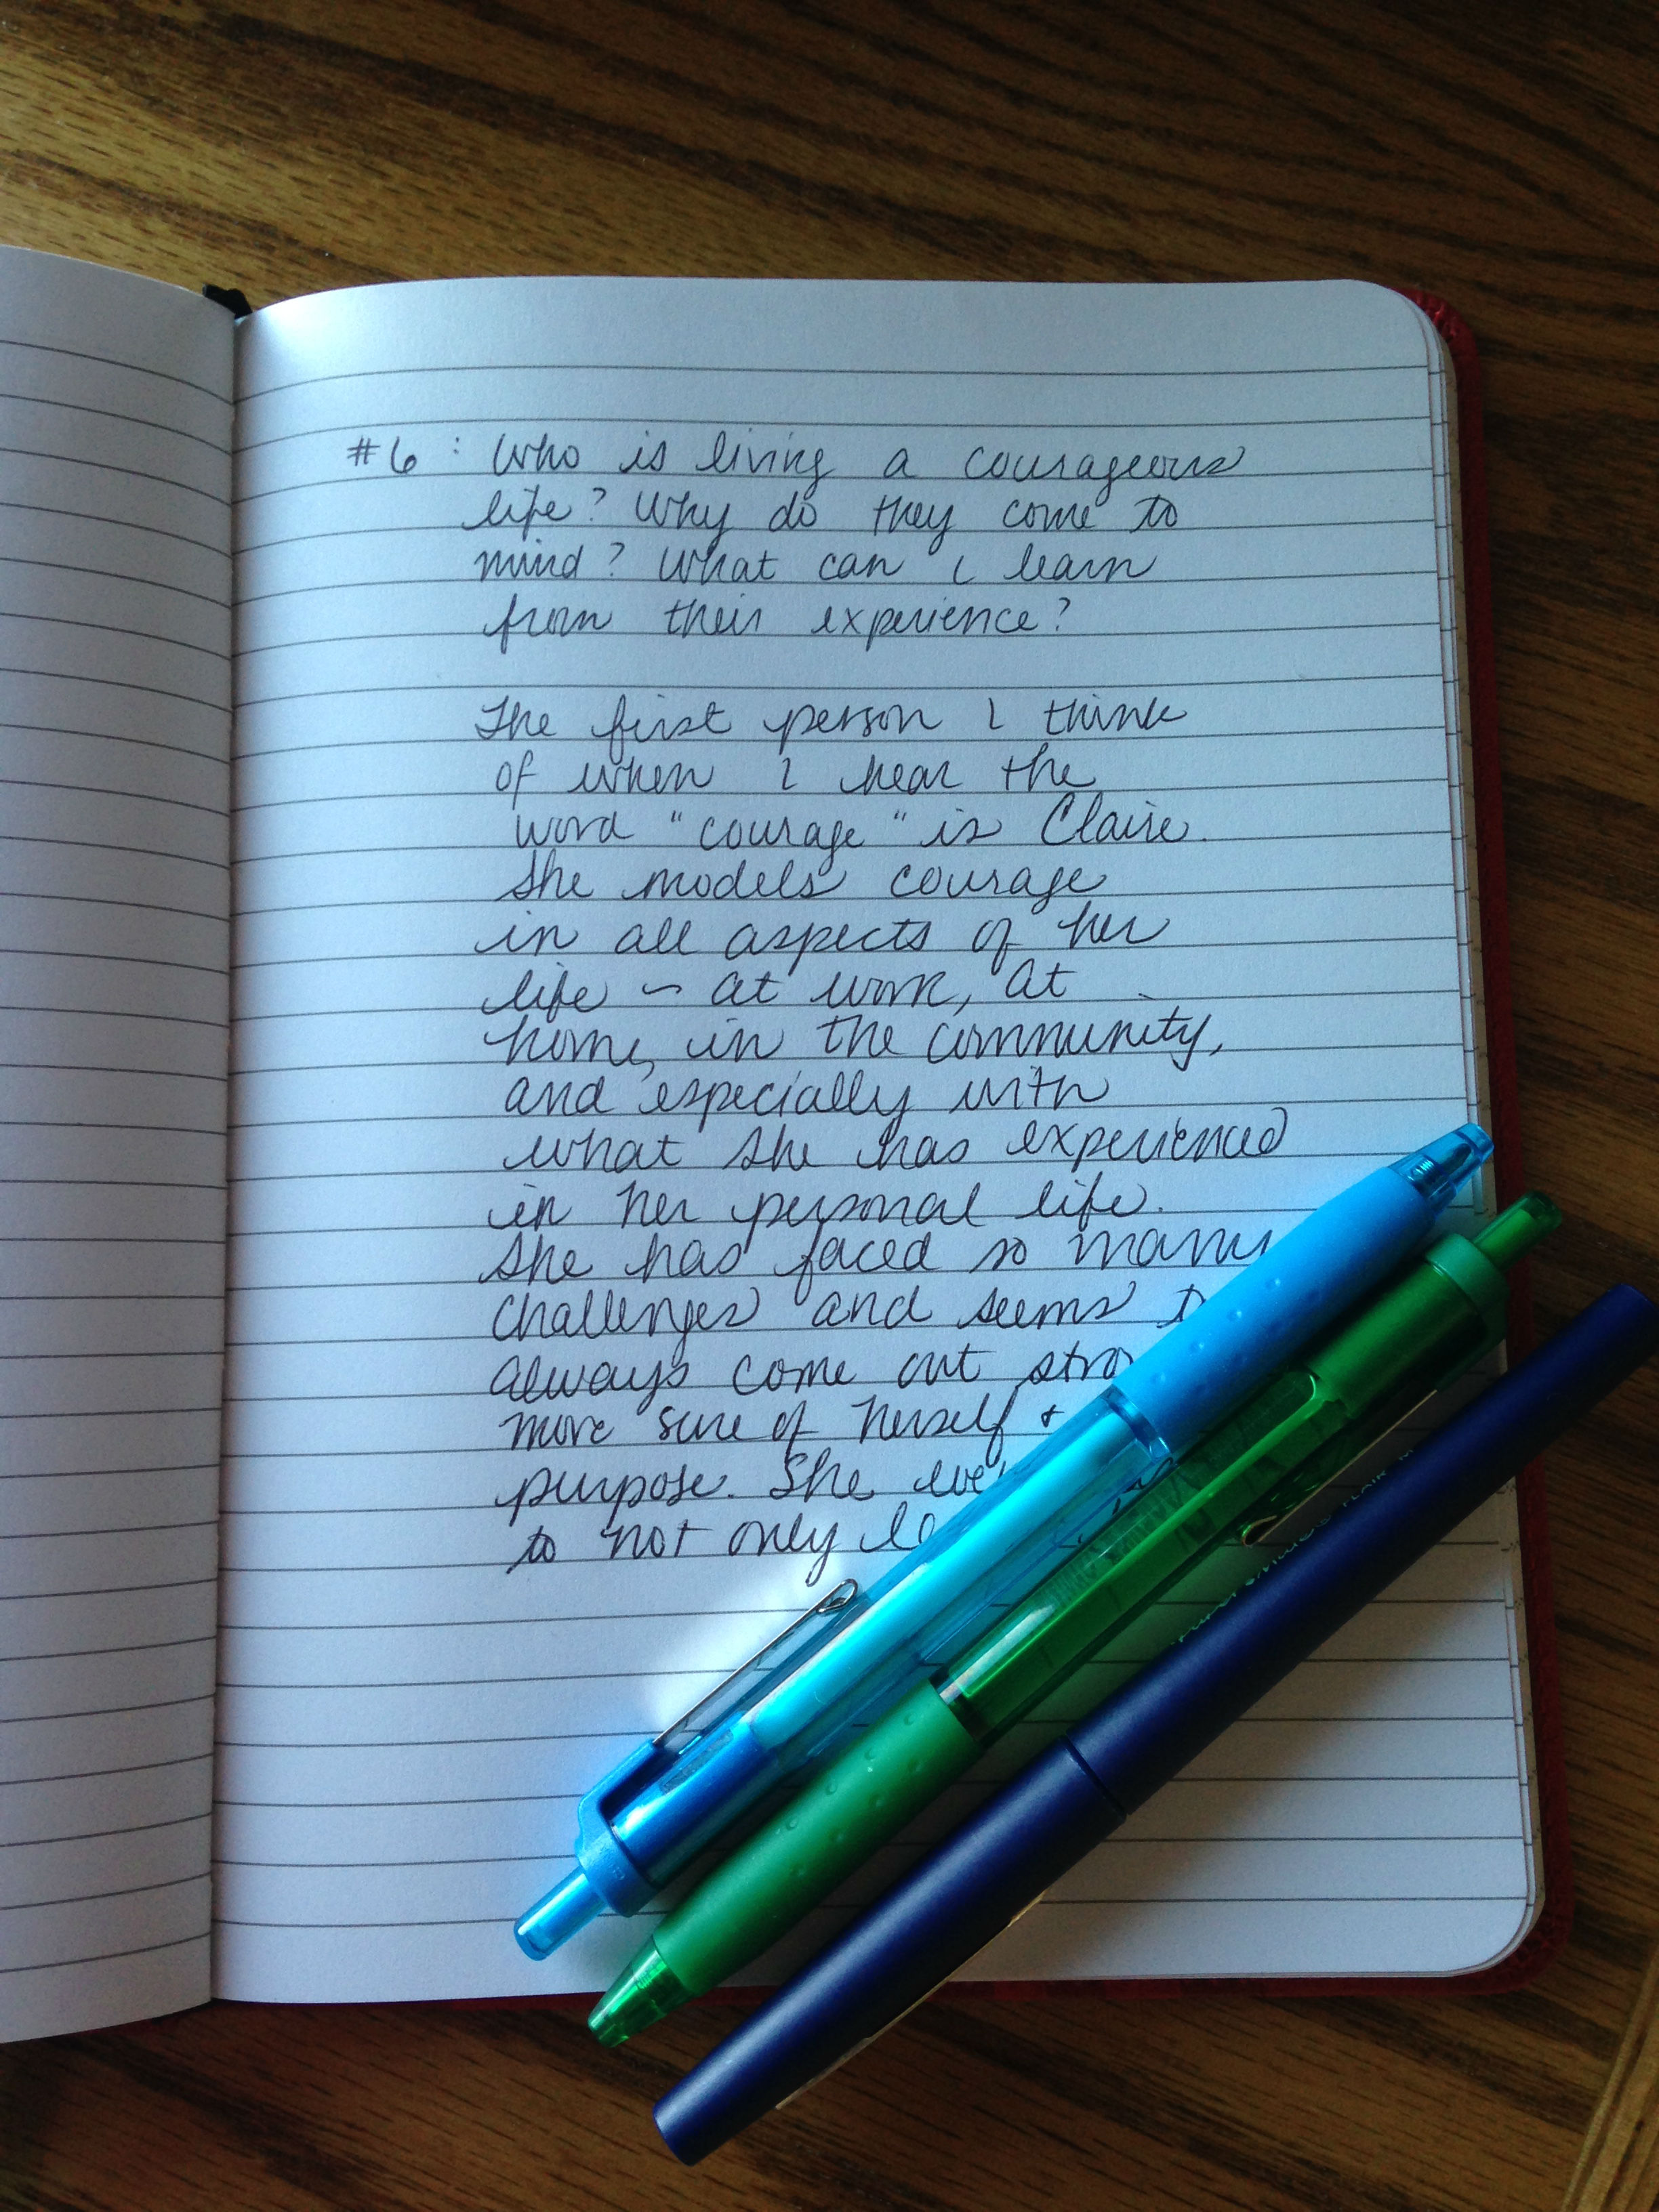 #6 : Who is living a courageous
life? Why do they come to
mind? What can I learn
from their experience?
The first person I think
of when I hear the
word "courage" is Claire.
She models courage
in all aspects of her
life - at work, at
home, in the community,
and especially with
what she has experienced
in her personal life.
She has faced so many
challenges and seems
always come out
more sure of herself +
purpose. She
to not only